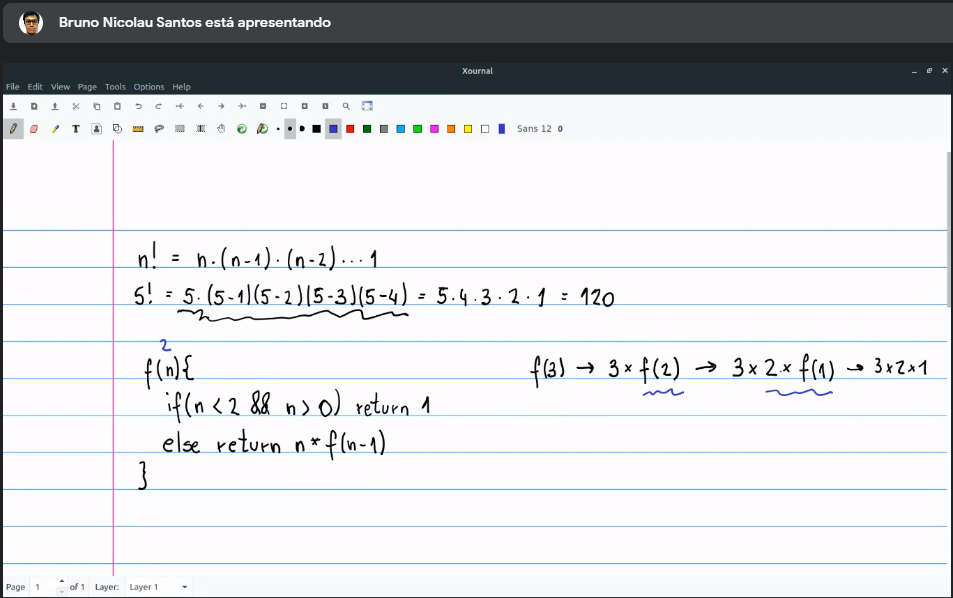 Bruno Nicolau Santos está apresentando
Xournal
File Edit View Page Tools Options Help
T Sans 12 0
n! = n.(n-1).(n-2)...1
5! = 5.(5-1)(5-2)(5-3)(5-4) = 5.4.3.2.1 = 120
2
f(n){ f(3) → 3×f(2) → 3×2×f(1) → 3×2×1
if(n<2 && n>0) return 1
else return n*f(n-1)
}
Page 1 of 1 Layer: Layer 1